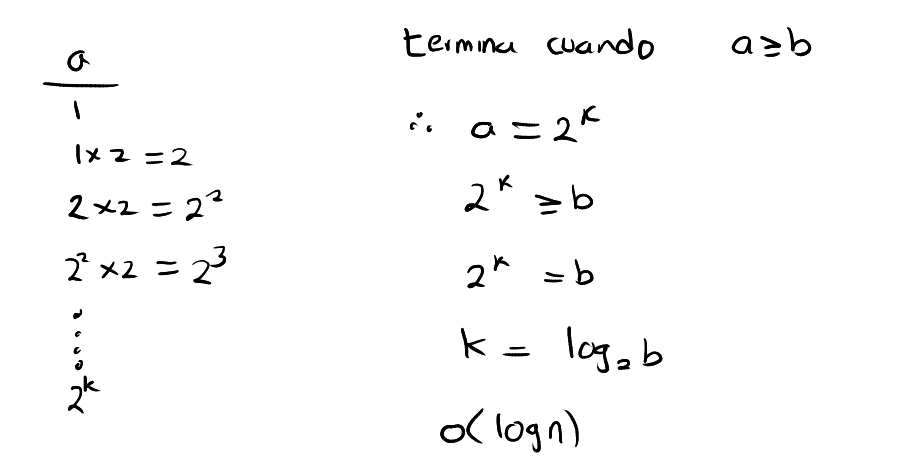 a
1
1 × 2 = 2
2 × 2 = 2²
2² × 2 = 2³
⋮
2ᵏ
termina cuando a ≥ b
∴ a = 2ᵏ
2ᵏ ≥ b
2ᵏ = b
k = log₂ b
O(log n)